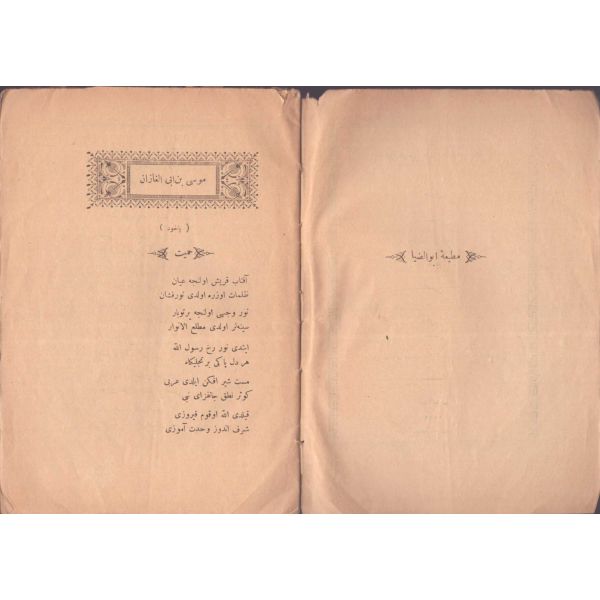 مطبعهٔ ابوالضيا
موسى بن ابى الغازان
( ياخود )
حميت
آفتاب قريش اولنجه عيان
ظلمات اوزره اولدى نورفشان
نور وجهى اولنجه پرتوبار
سينه‌لر اولدى مطلع الانوار
ايتدى نور رخ رسول الله
هر دل پاكى بر تجليكاه
مست شير افكن ايلدى عربى
كوثر نطق جانفزاى نبى
قيلدى الله اوقوم فيروزى
شرف اندوز وحدت آموزى